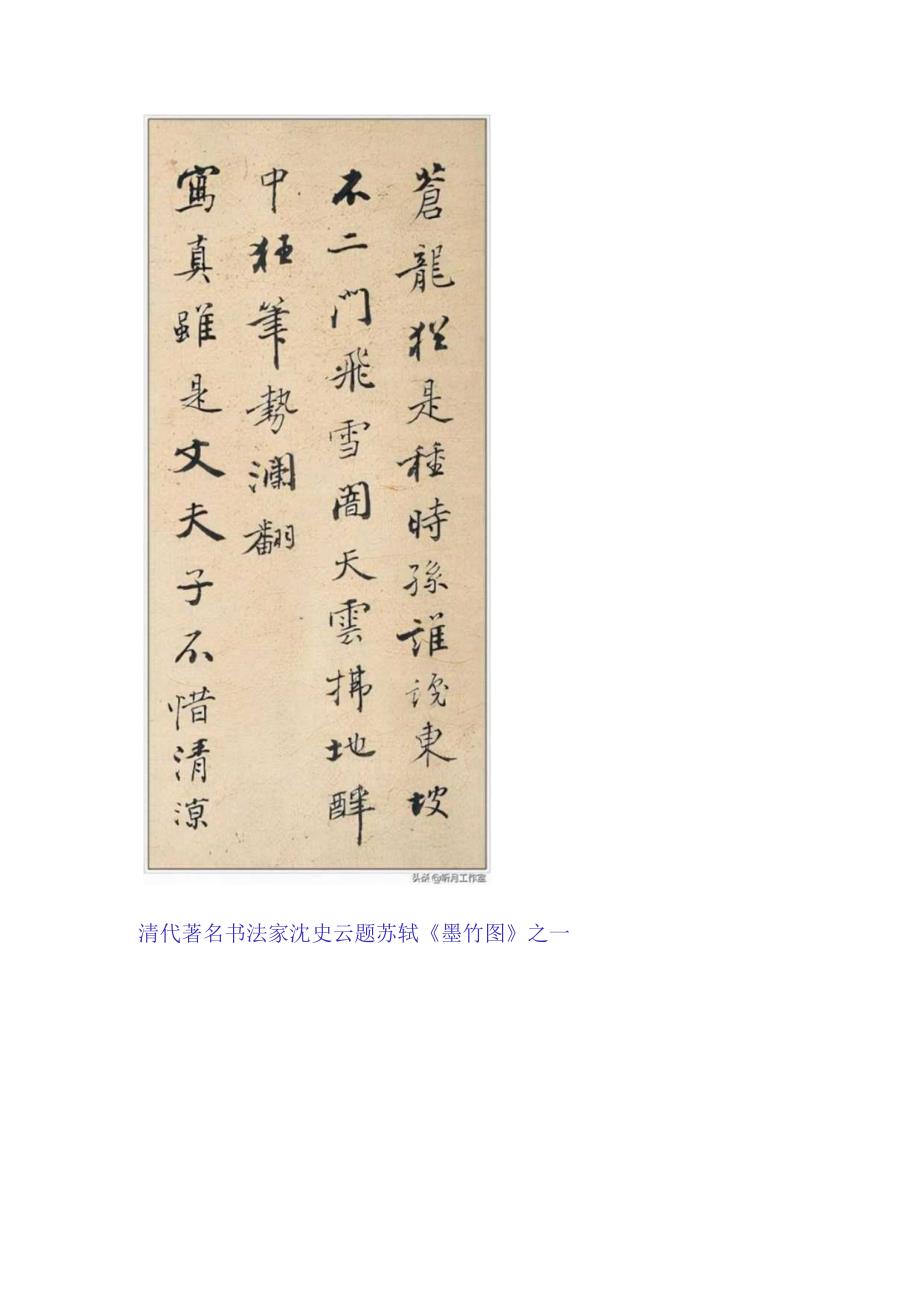 蒼龍猶是種時孫誰識東坡
不二門飛雪闇天雲拂地醉
中狂筆勢瀾翻
寫真雖是丈夫子不惜清涼
头条@听月工作室
清代著名书法家沈史云题苏轼《墨竹图》之一